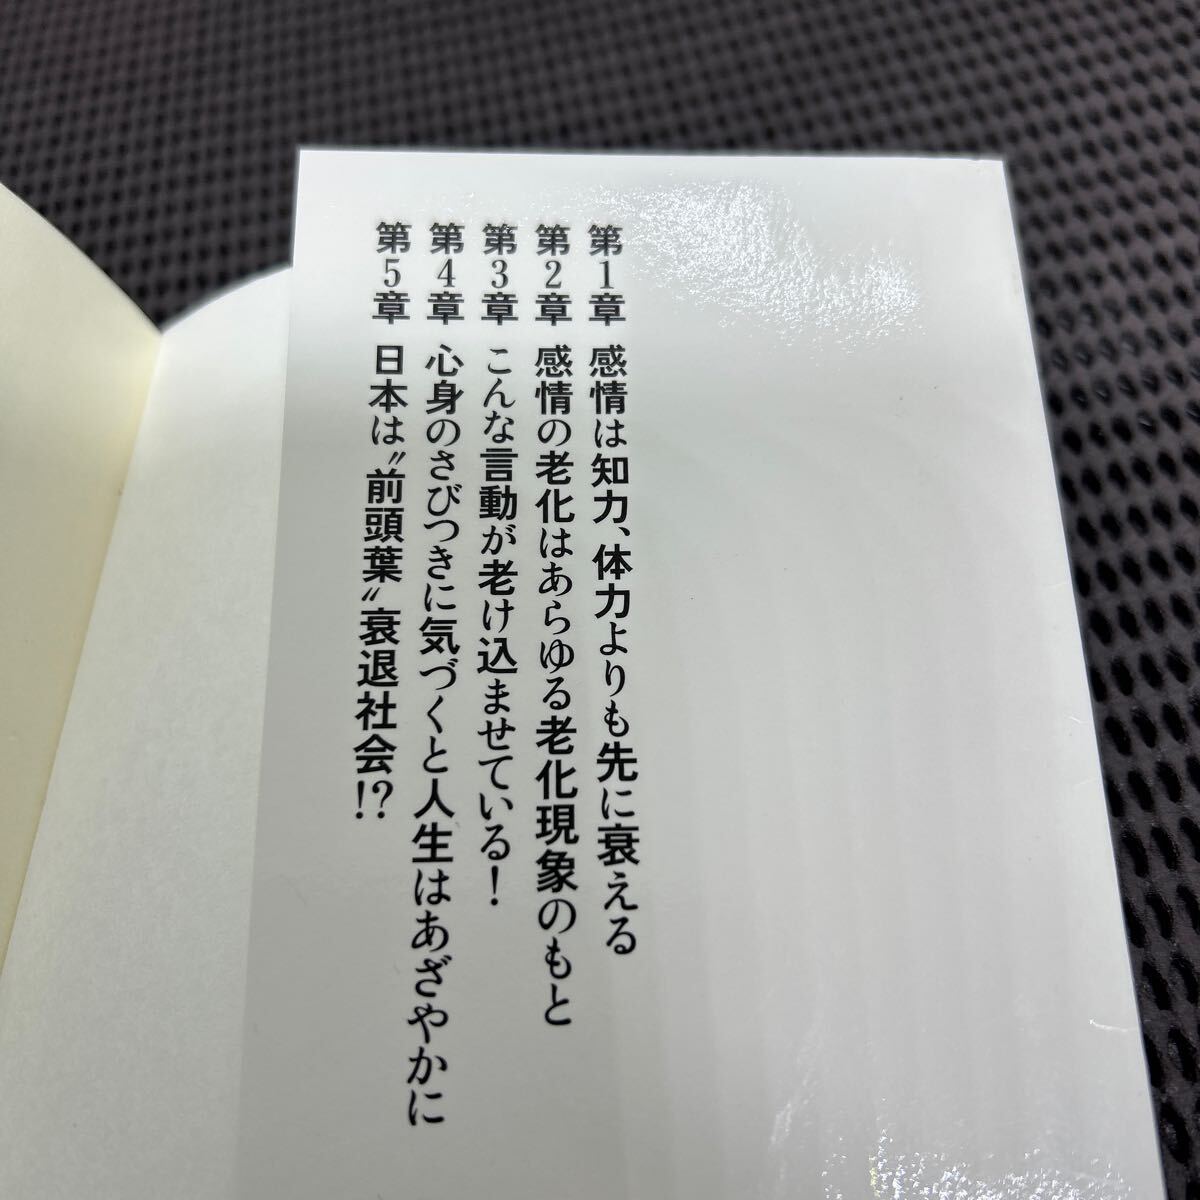 第1章 感情は知力、体力よりも先に衰える
第2章 感情の老化はあらゆる老化現象のもと
第3章 こんな言動が老け込ませている！
第4章 心身のさびつきに気づくと人生はあざやかに
第5章 日本は〝前頭葉〟衰退社会!?